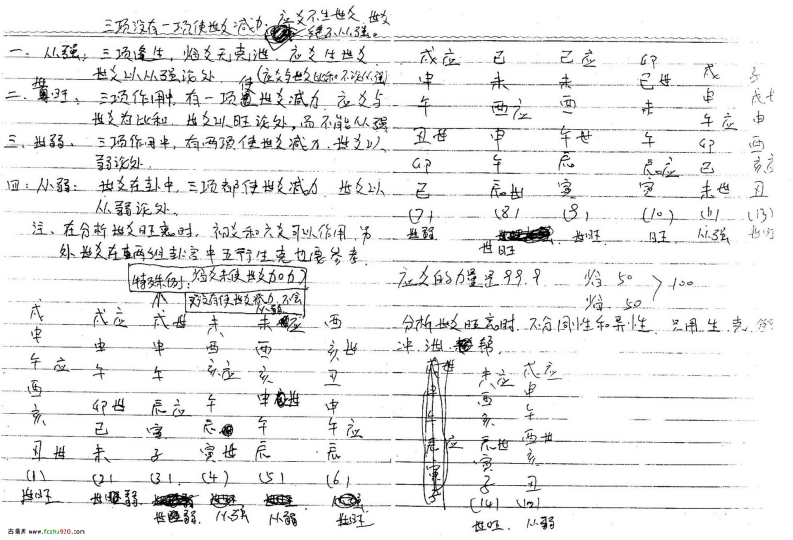 三项没有一项使世爻减力，应爻不生世爻，世爻
绝不从强。
一、从强：三项逢生，临爻无克泄，应爻生世爻
世爻以从强论处，使(应爻与世爻比和不论从强)
二、世旺：三项作用中，有一项使世爻减力，应爻与
世爻为比和，世爻以旺论处，而不能从强
三、世弱：三项作用中，有两项使世爻减力，世爻以
弱论处。
四：从弱：世爻在卦中，三项都使世爻减力，世爻以
从弱论处。
注、在分析世爻旺衰时，初爻和六爻可以作用，另
外世爻在两组卦宫中五行生克也要参考。
特殊例：临爻未使世爻加力
戌应 己 己应 卯 戌 子
申 未 未 己世 申 戌世
午 酉应 酉 未 午应 申
丑世 申 午世 午 卯 酉
卯 午 辰 辰应 己 亥应
己 辰世 寅 寅 未世 丑
(7) (8) (9) (10) (11) (13)
世弱 世旺 世旺 旺 从强 世旺
应爻的力量是99.9 临50 临50 > 100
分析世爻旺衰时，不分同性和异性，只用生克
冲泄帮
戌 戌应 戌世 未 未应 酉
申 申 申 酉 酉 亥世
午应 午 午 亥应 亥 丑
酉 卯世 辰应 午 申世 申
亥 己 寅 辰 午 午应
丑世 未 子 寅世 辰 辰
(1) (2) (3) (4) (5) (6)
世旺 世弱 世弱 从强 从弱 世旺
未应 戌应
酉 申
亥 午
辰世 酉世
寅 亥
子 丑
(14) (12)
世旺 从弱
古易库 www.fczhu920.com